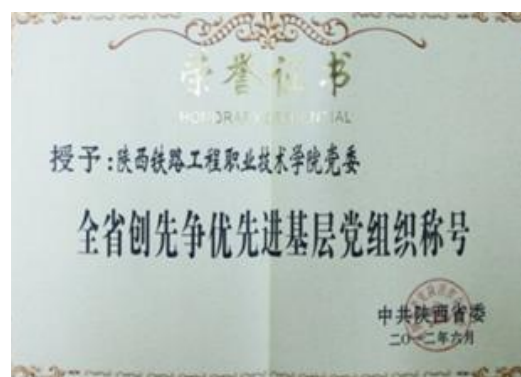 荣誉证书
HONORARY CREDENTIAL
授予:陕西铁路工程职业技术学院党委
全省创先争优先进基层党组织称号
中共陕西省委
二〇一二年六月